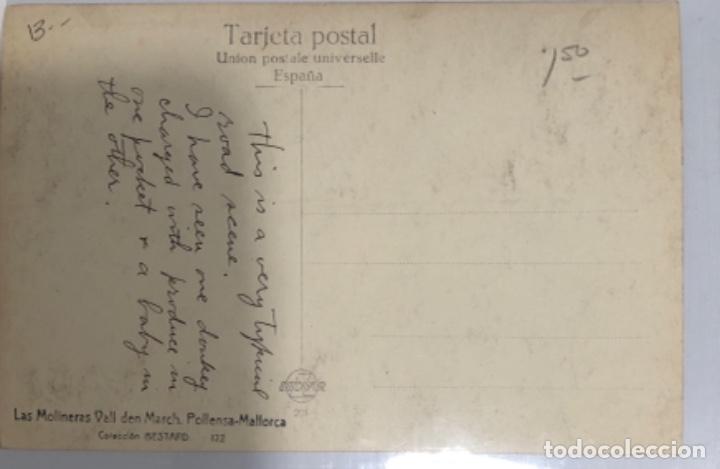 13--
Tarjeta postal
Union postale universelle
España
1,50
This is a very typical
road scene.
I have seen one donkey
charged with produce in
one pocket & a baby in
the other.
Las Molineras Vall den March. Pollensa-Mallorca
Colección BESTARD. 122
todocoleccion